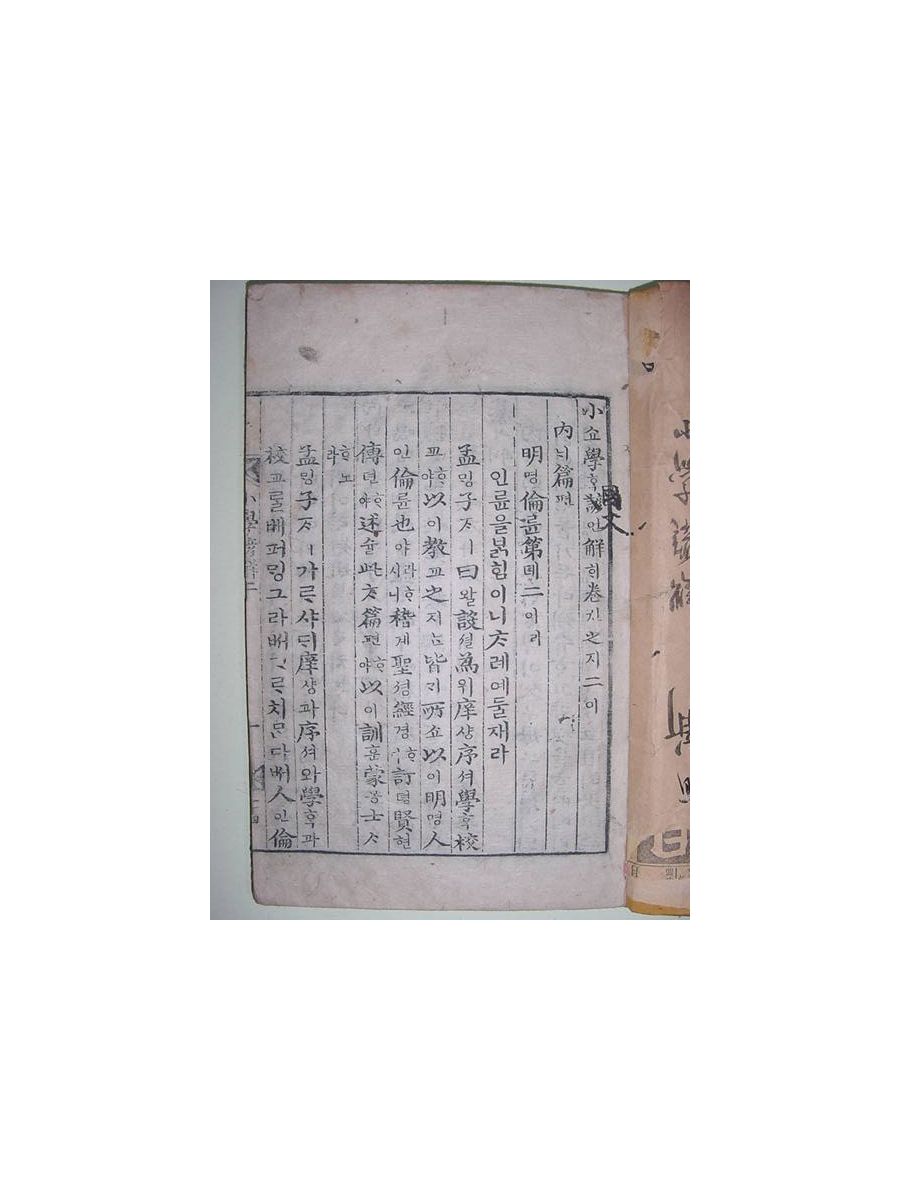 小쇼學ᄒᆞᆨ諺언解ᄒᆡ卷之지二이
國文
內ᄂᆡ篇편
明명倫륜第뎨二이라
인륜을붉힘이니ᄎᆞ례예둘재라
孟ᄆᆡᆼ子ᄌᆞㅣ曰왈設셜爲위庠샹序셔學ᄒᆞᆨ校
교ᄒᆞ야以이敎교之지ᄂᆞᆫ皆ᄀᆡ所소以이明명人
인倫륜也야ㅣ라ᄒᆞ시니稽계聖셩經경ᄒᆞ며訂뎡賢현
傳뎐ᄒᆞ야述슐此ᄎᆞ篇편ᄒᆞ야以이訓훈蒙몽士ᄉᆞ
ᄒᆞ노라
孟ᄆᆡᆼ子ᄌᆞㅣᄀᆞᄅᆞ샤ᄃᆡ庠샹과序셔와學ᄒᆞᆨ과
校교ᄅᆞᆯ베퍼ᄆᆡᆼᄀᆞ라ᄡᅥᄀᆞᄅᆞ치ᄆᆞᆫ다ᄡᅥ人인倫